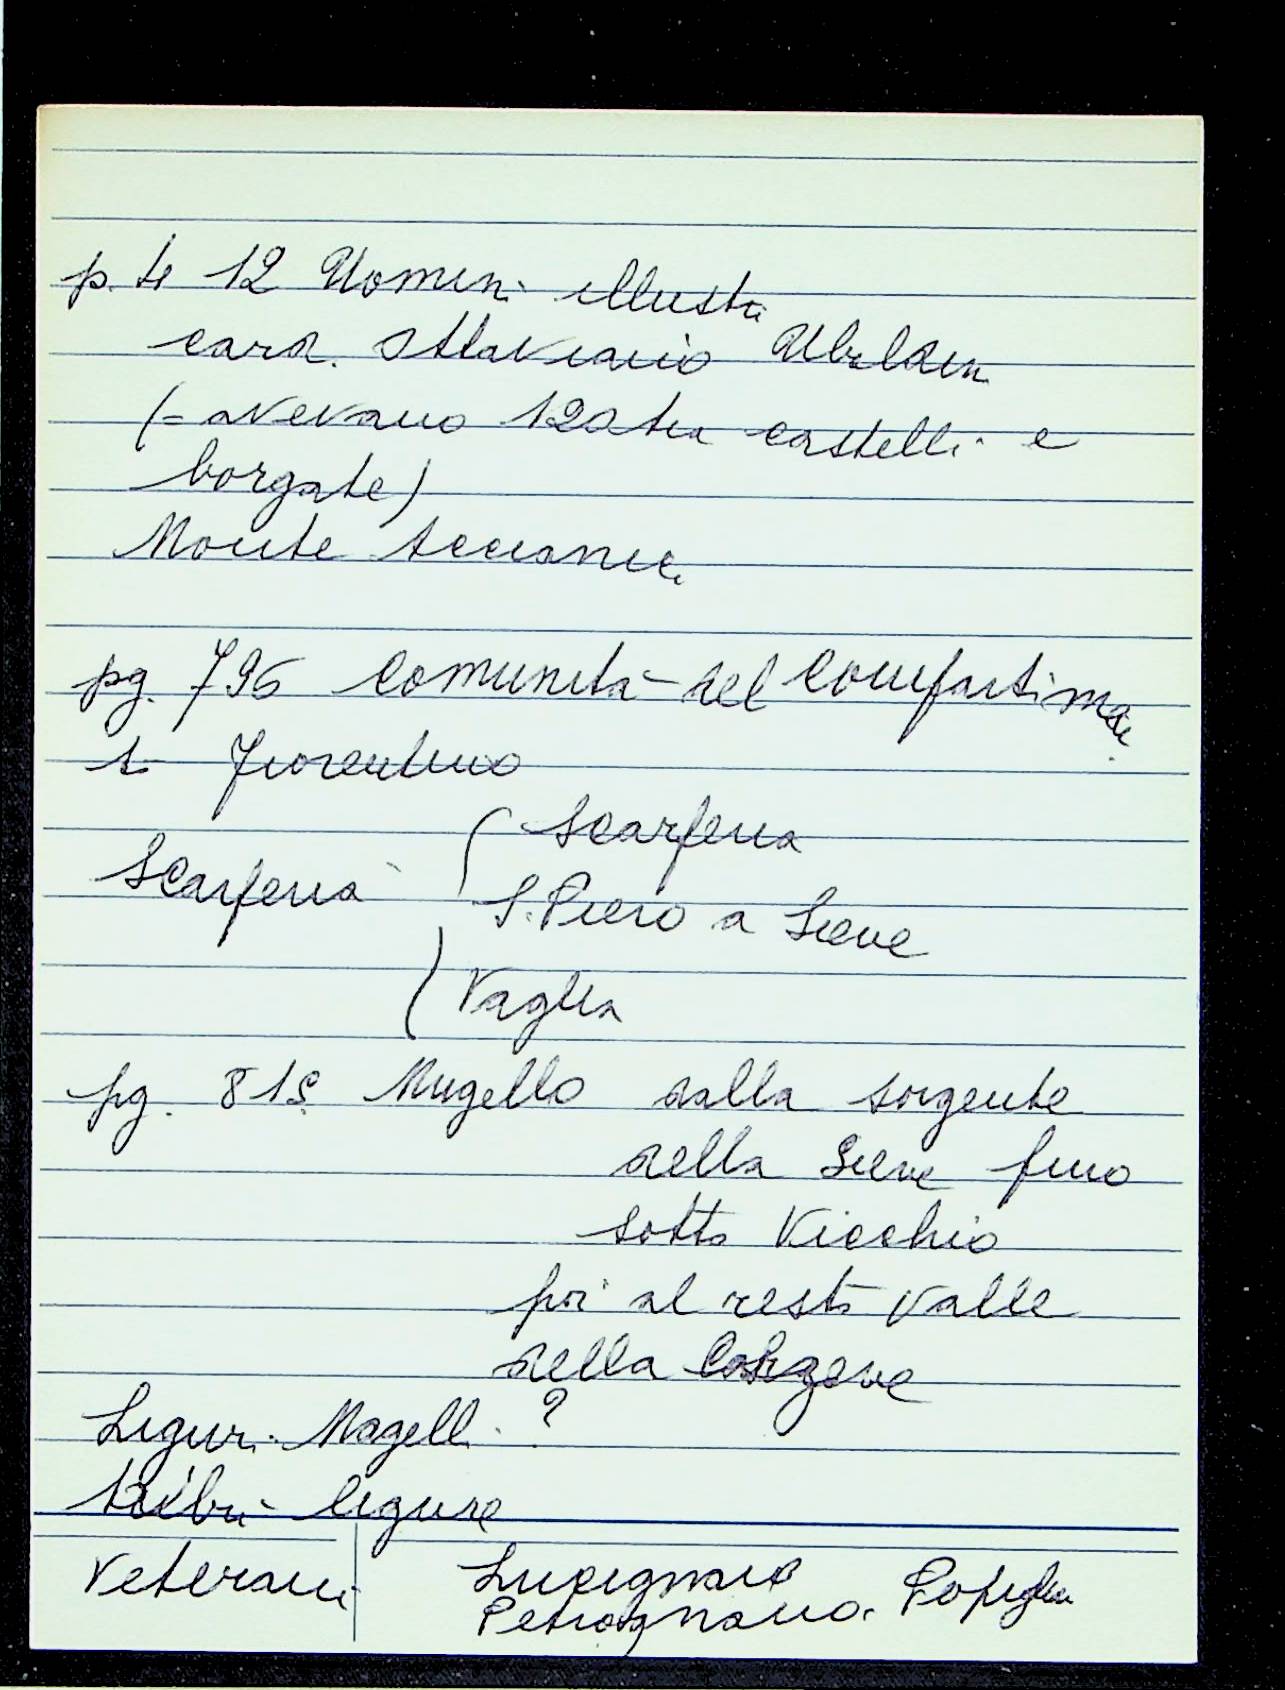 p. te 12 Uomini illustri
card. Ottaviano Ubaldin
(= avevano 120 tra castelli e
borgate)
Monte Accianic.
pg. 796 Comunità del Compartimen
to Fiorentino
Scarperia
Scarperia
S. Piero a Sieve
Vaglia
pg. 815 Mugello dalla sorgente
della Sieve fino
sotto Vicchio
poi al resto valle
della
Liguri Magelli ?
tribù ligure
Veterani Lucignano
Petrognano. Popiglia